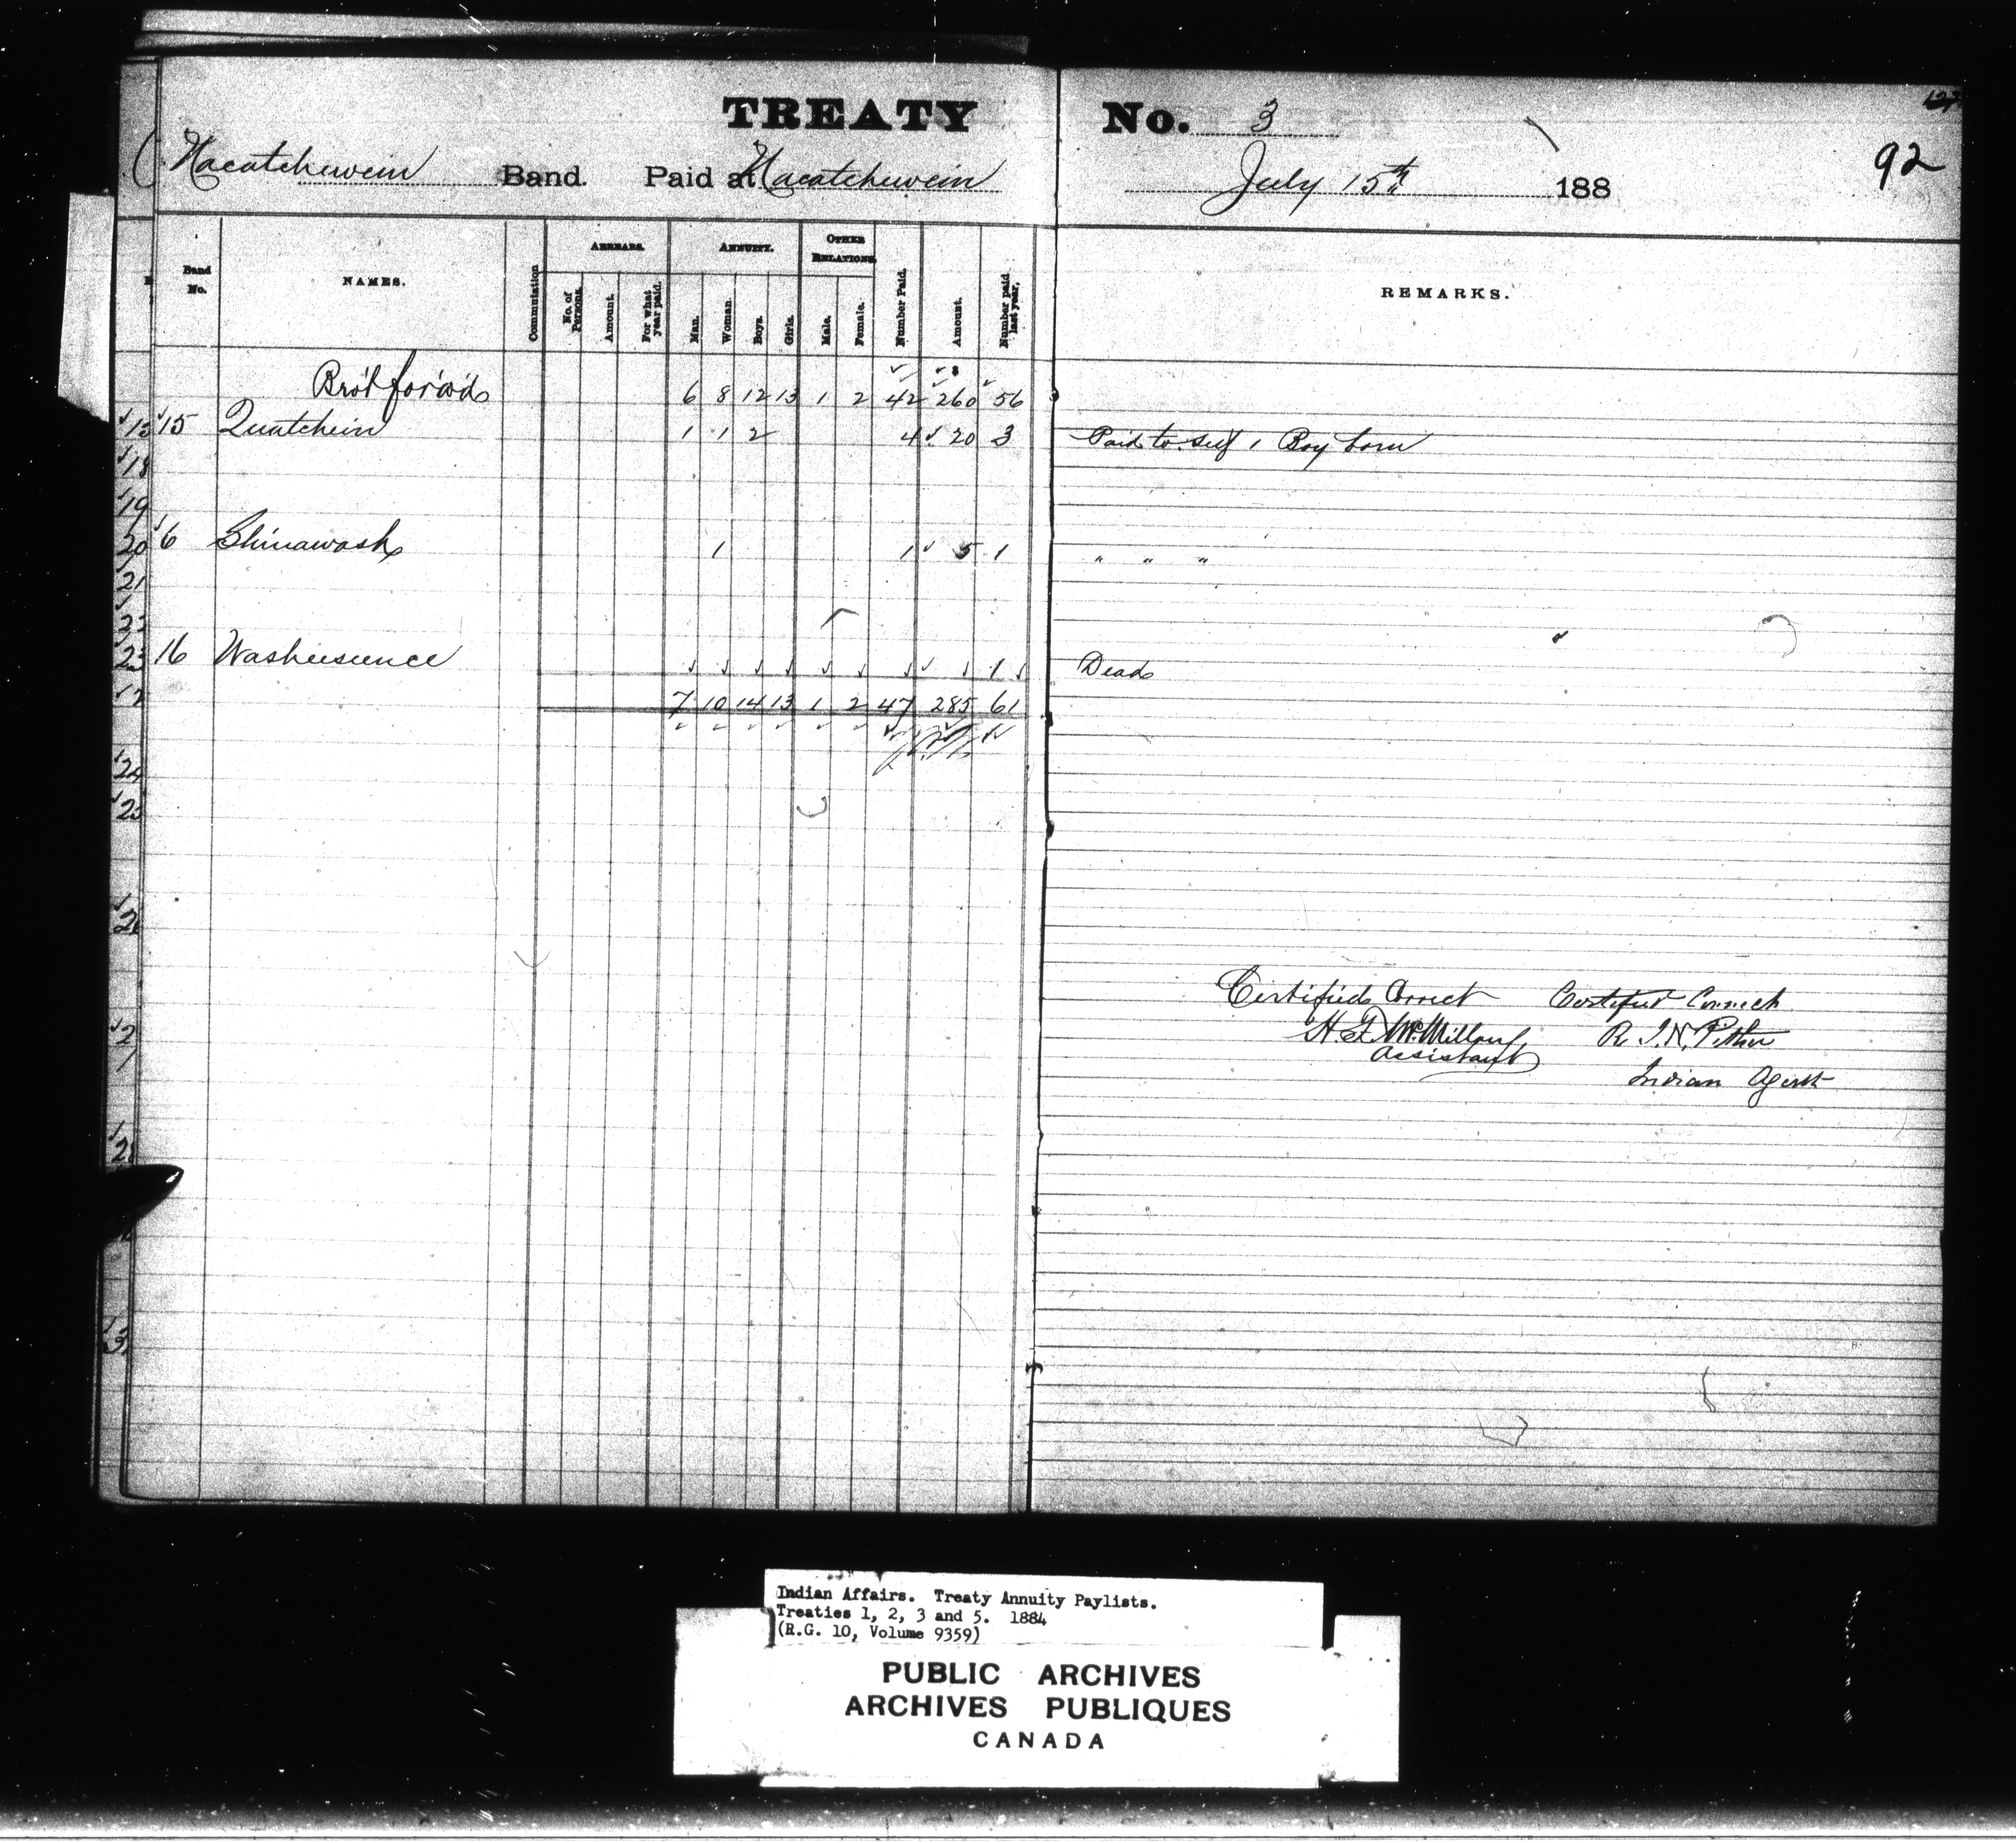 TREATY No. 3
Nacatchewein Band. Paid at Nacatchewein July 15th 188
92
Band No. NAMES. Commutation ARREARS. No. of Persons. Amount. For what year paid. ANNUITY. Man. Woman. Boys. Girls. OTHER RELATIONS. Male. Female. Number Paid. Amount. Number paid last year. REMARKS.
Bro't for'w'd 6 8 12 13 1 2 42 260 56
15 Quatchein 1 1 2 4 20 3 Paid to self 1 Boy born
6 Shinawash 1 1 5 1 " " "
16 Washeesence 1 Dead
7 10 14 13 1 2 47 285 61
Certified Correct Certified Correct
H. McMillan R. J. N. Pither
Assistant
Indian Agent
13
18
19
20
21
22
23
24
25
Indian Affairs. Treaty Annuity Paylists.
Treaties 1, 2, 3 and 5. 1884
(R.G. 10, Volume 9359)
PUBLIC ARCHIVES
ARCHIVES PUBLIQUES
CANADA